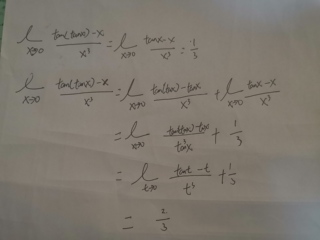 lim x→0 tan(tanx)-x / x³ = lim x→0 tanx-x / x³ = 1/3
lim x→0 tan(tanx)-x / x³ = lim x→0 tan(tanx)-tanx / x³ + lim x→0 tanx-x / x³
= lim x→0 tan(tanx)-tanx / tan³x + 1/3
= lim t→0 tant-t / t³ + 1/3
= 2/3